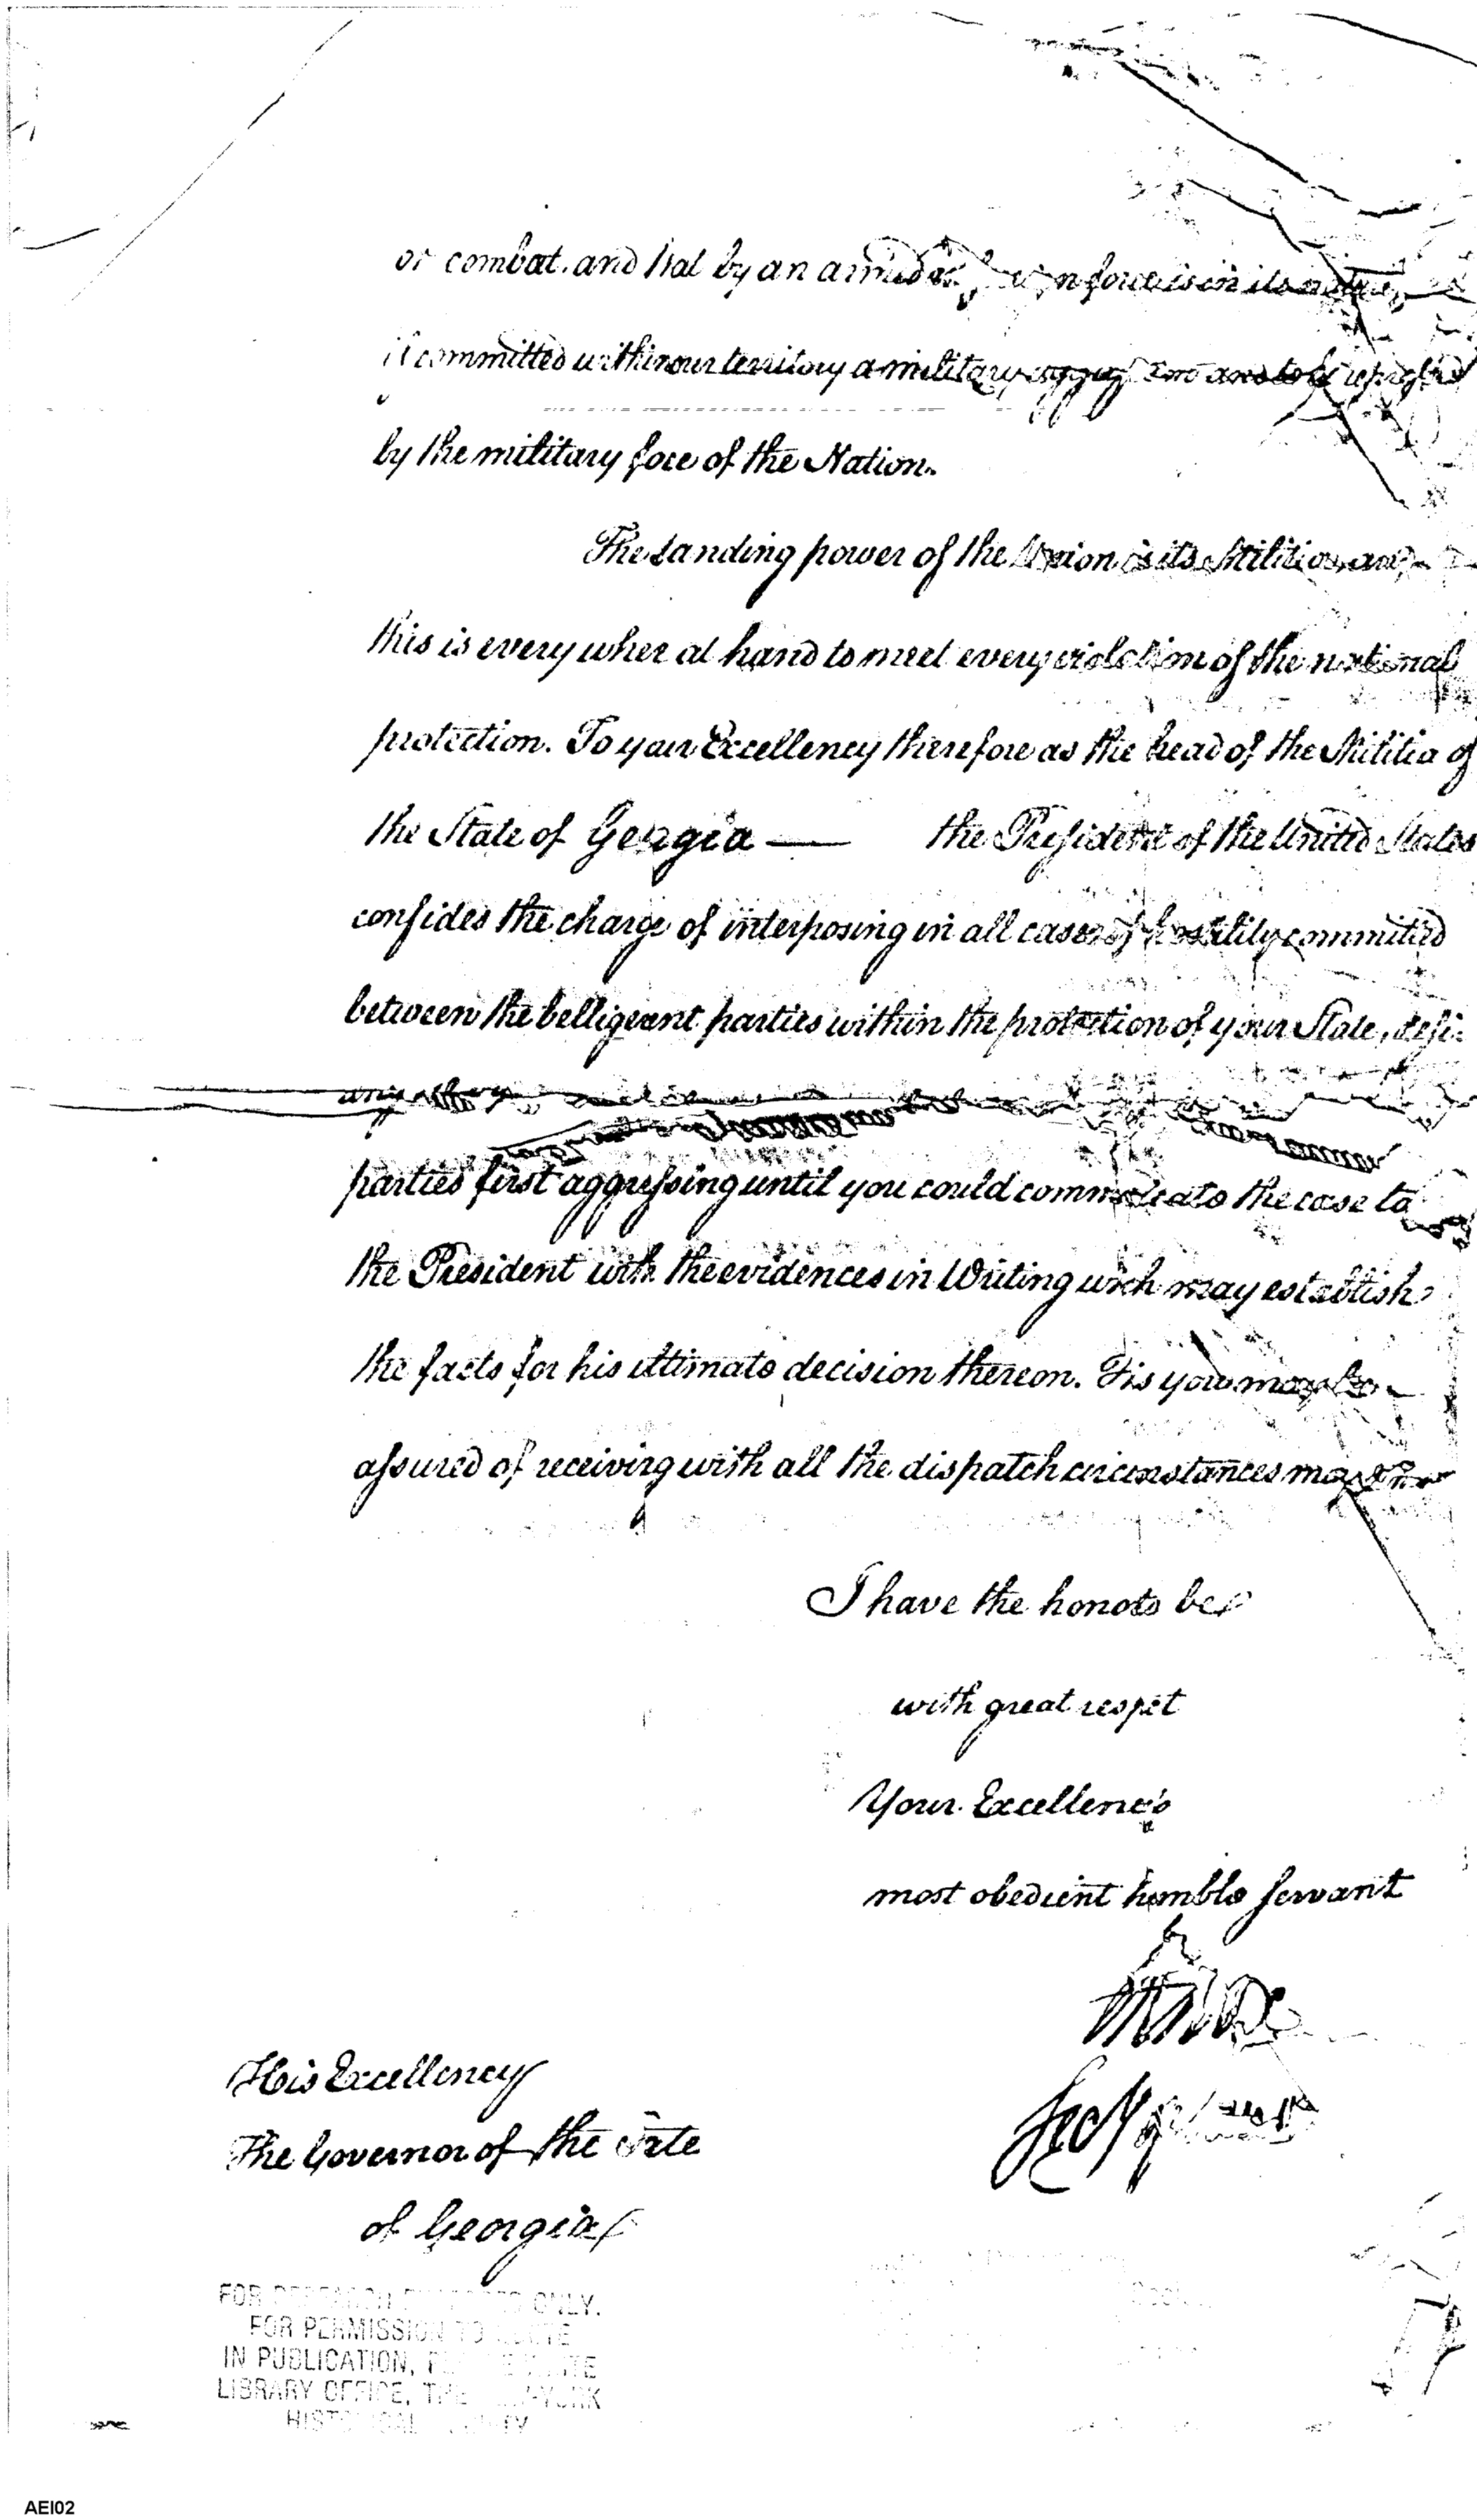 or combat. and that by an armed force is in its nature
if committed within our territory a military aggression and to be repressed
by the military force of the Nation.
The standing power of the Union is its Militia and
this is every where at hand to meet every violation of the national
protection. To your Excellency therefore as the head of the Militia of
the State of Georgia — the President of the United States
confides the charge of interposing in all cases of hostility committed
between the belligerent parties within the protection of your State, desi-
parties first aggressing until you could communicate the case to
the President with the evidences in Writing which may establish
the facts for his ultimate decision thereon. This you may be
assured of receiving with all the dispatch circumstances may
I have the honor to be
with great respect
Your Excellency's
most obedient humble servant
His Excellency
The Governor of the State
of Georgia
FOR RESEARCH PURPOSES ONLY.
FOR PERMISSION TO QUOTE
IN PUBLICATION, PLEASE WRITE
LIBRARY OFFICE, THE NEW-YORK
HISTORICAL SOCIETY
AEI02